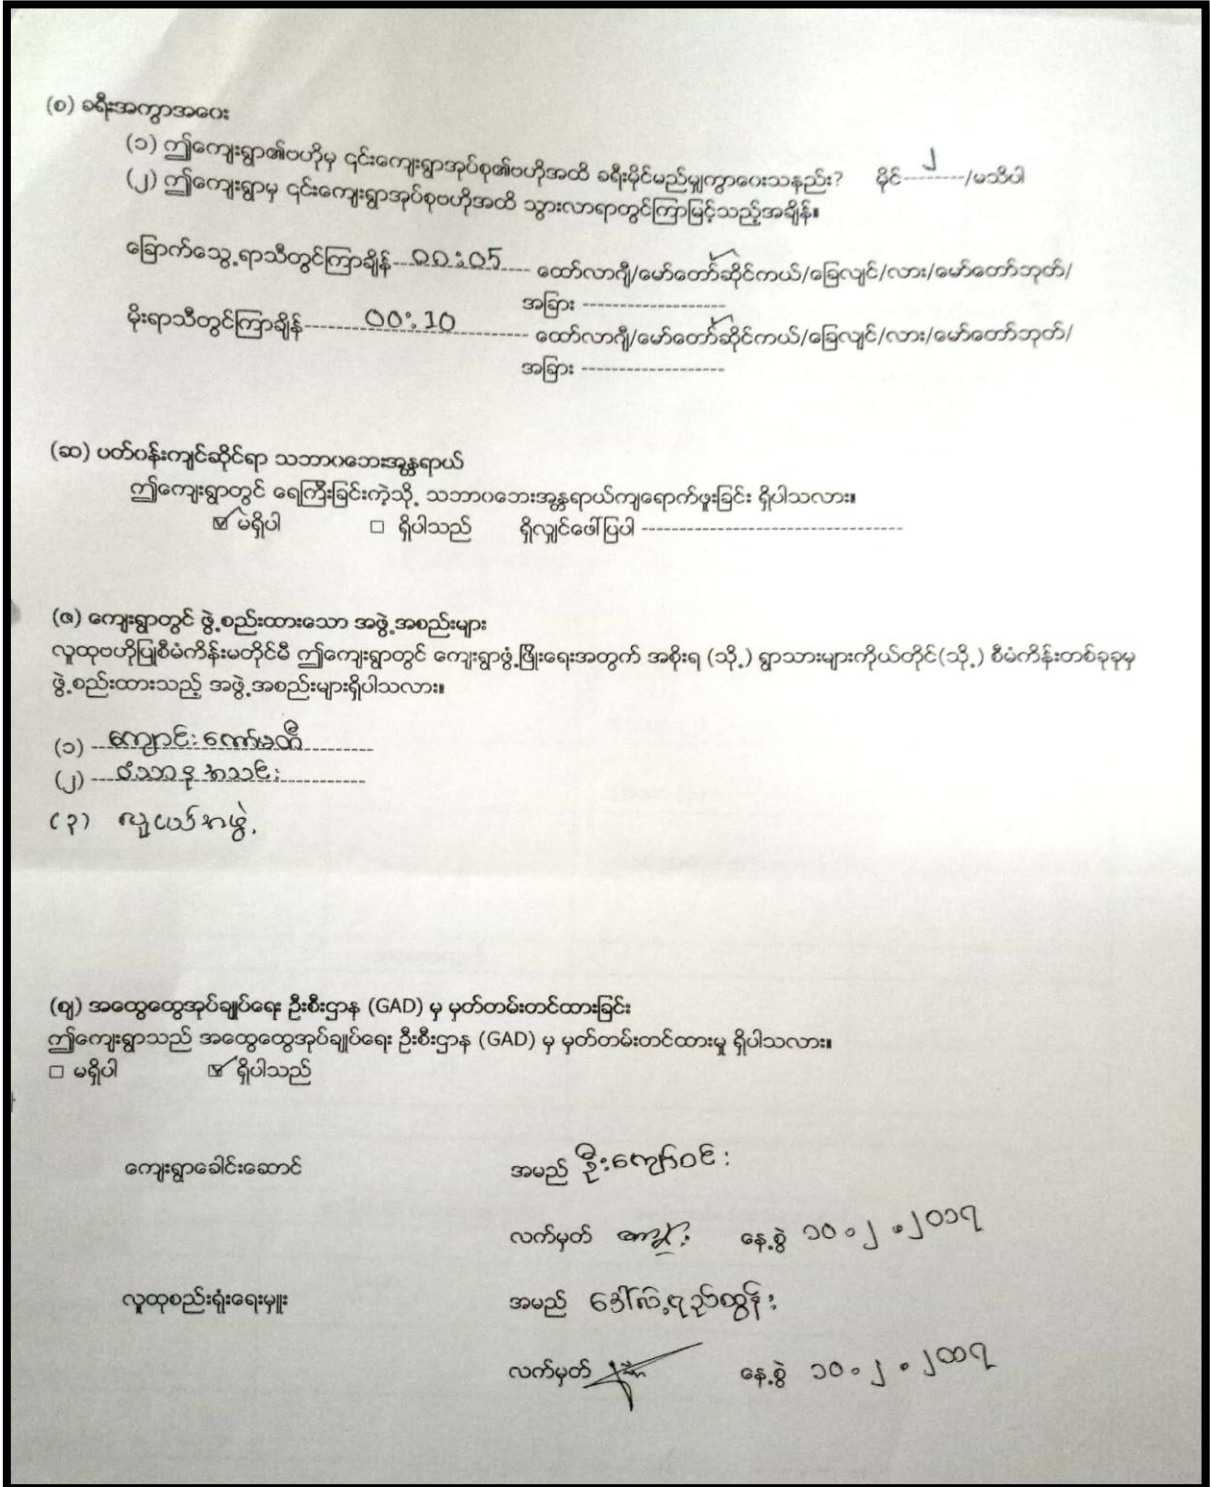 (စ) ခရီးအကွာအဝေး
(၁) ဤကျေးရွာ၏ဗဟိုမှ ၎င်းကျေးရွာအုပ်စု၏ဗဟိုအထိ ခရီးမိုင်မည်မျှကွာဝေးသနည်း? မိုင်---၂---/မသိပါ
(၂) ဤကျေးရွာမှ ၎င်းကျေးရွာအုပ်စုဗဟိုအထိ သွားလာရာတွင်ကြာမြင့်သည့်အချိန်။
ခြောက်သွေ့ရာသီတွင်ကြာချိန်---00:05--- ထော်လာဂျီ/မော်တော်ဆိုင်ကယ်/ခြေလျင်/လား/မော်တော်ဘုတ်/
အခြား -------------------
မိုးရာသီတွင်ကြာချိန်---00:10--- ထော်လာဂျီ/မော်တော်ဆိုင်ကယ်/ခြေလျင်/လား/မော်တော်ဘုတ်/
အခြား -------------------
(ဆ) ပတ်ဝန်းကျင်ဆိုင်ရာ သဘာဝဘေးအန္တရာယ်
ဤကျေးရွာတွင် ရေကြီးခြင်းကဲ့သို့ သဘာဝဘေးအန္တရာယ်ကျရောက်ဖူးခြင်း ရှိပါသလား။
☑ မရှိပါ □ ရှိပါသည် ရှိလျှင်ဖေါ်ပြပါ -----------------------------------
(ဇ) ကျေးရွာတွင် ဖွဲ့စည်းထားသော အဖွဲ့အစည်းများ
လူထုဗဟိုပြုစီမံကိန်းမတိုင်မီ ဤကျေးရွာတွင် ကျေးရွာဖွံ့ဖြိုးရေးအတွက် အစိုးရ (သို့) ရွာသားများကိုယ်တိုင်(သို့) စီမံကိန်းတစ်ခုခုမှ
ဖွဲ့စည်းထားသည့် အဖွဲ့အစည်းများရှိပါသလား။
(၁) ကျောင်းကော်မတီ
(၂) ဝံသာနုအသင်း
(၃) လူငယ်အဖွဲ့
(ဈ) အထွေထွေအုပ်ချုပ်ရေး ဦးစီးဌာန (GAD) မှ မှတ်တမ်းတင်ထားခြင်း
ဤကျေးရွာသည် အထွေထွေအုပ်ချုပ်ရေး ဦးစီးဌာန (GAD) မှ မှတ်တမ်းတင်ထားမှု ရှိပါသလား။
□ မရှိပါ ☑ ရှိပါသည်
ကျေးရွာခေါင်းဆောင် အမည် ဦးကျော်ဝင်း
လက်မှတ် နေ့စွဲ ၁၀.၂.၂၀၁၇
လူထုစည်းရုံးရေးမှူး အမည် ဒေါ်လဲ့ရည်ထွန်း
လက်မှတ် နေ့စွဲ ၁၀.၂.၂၀၁၇